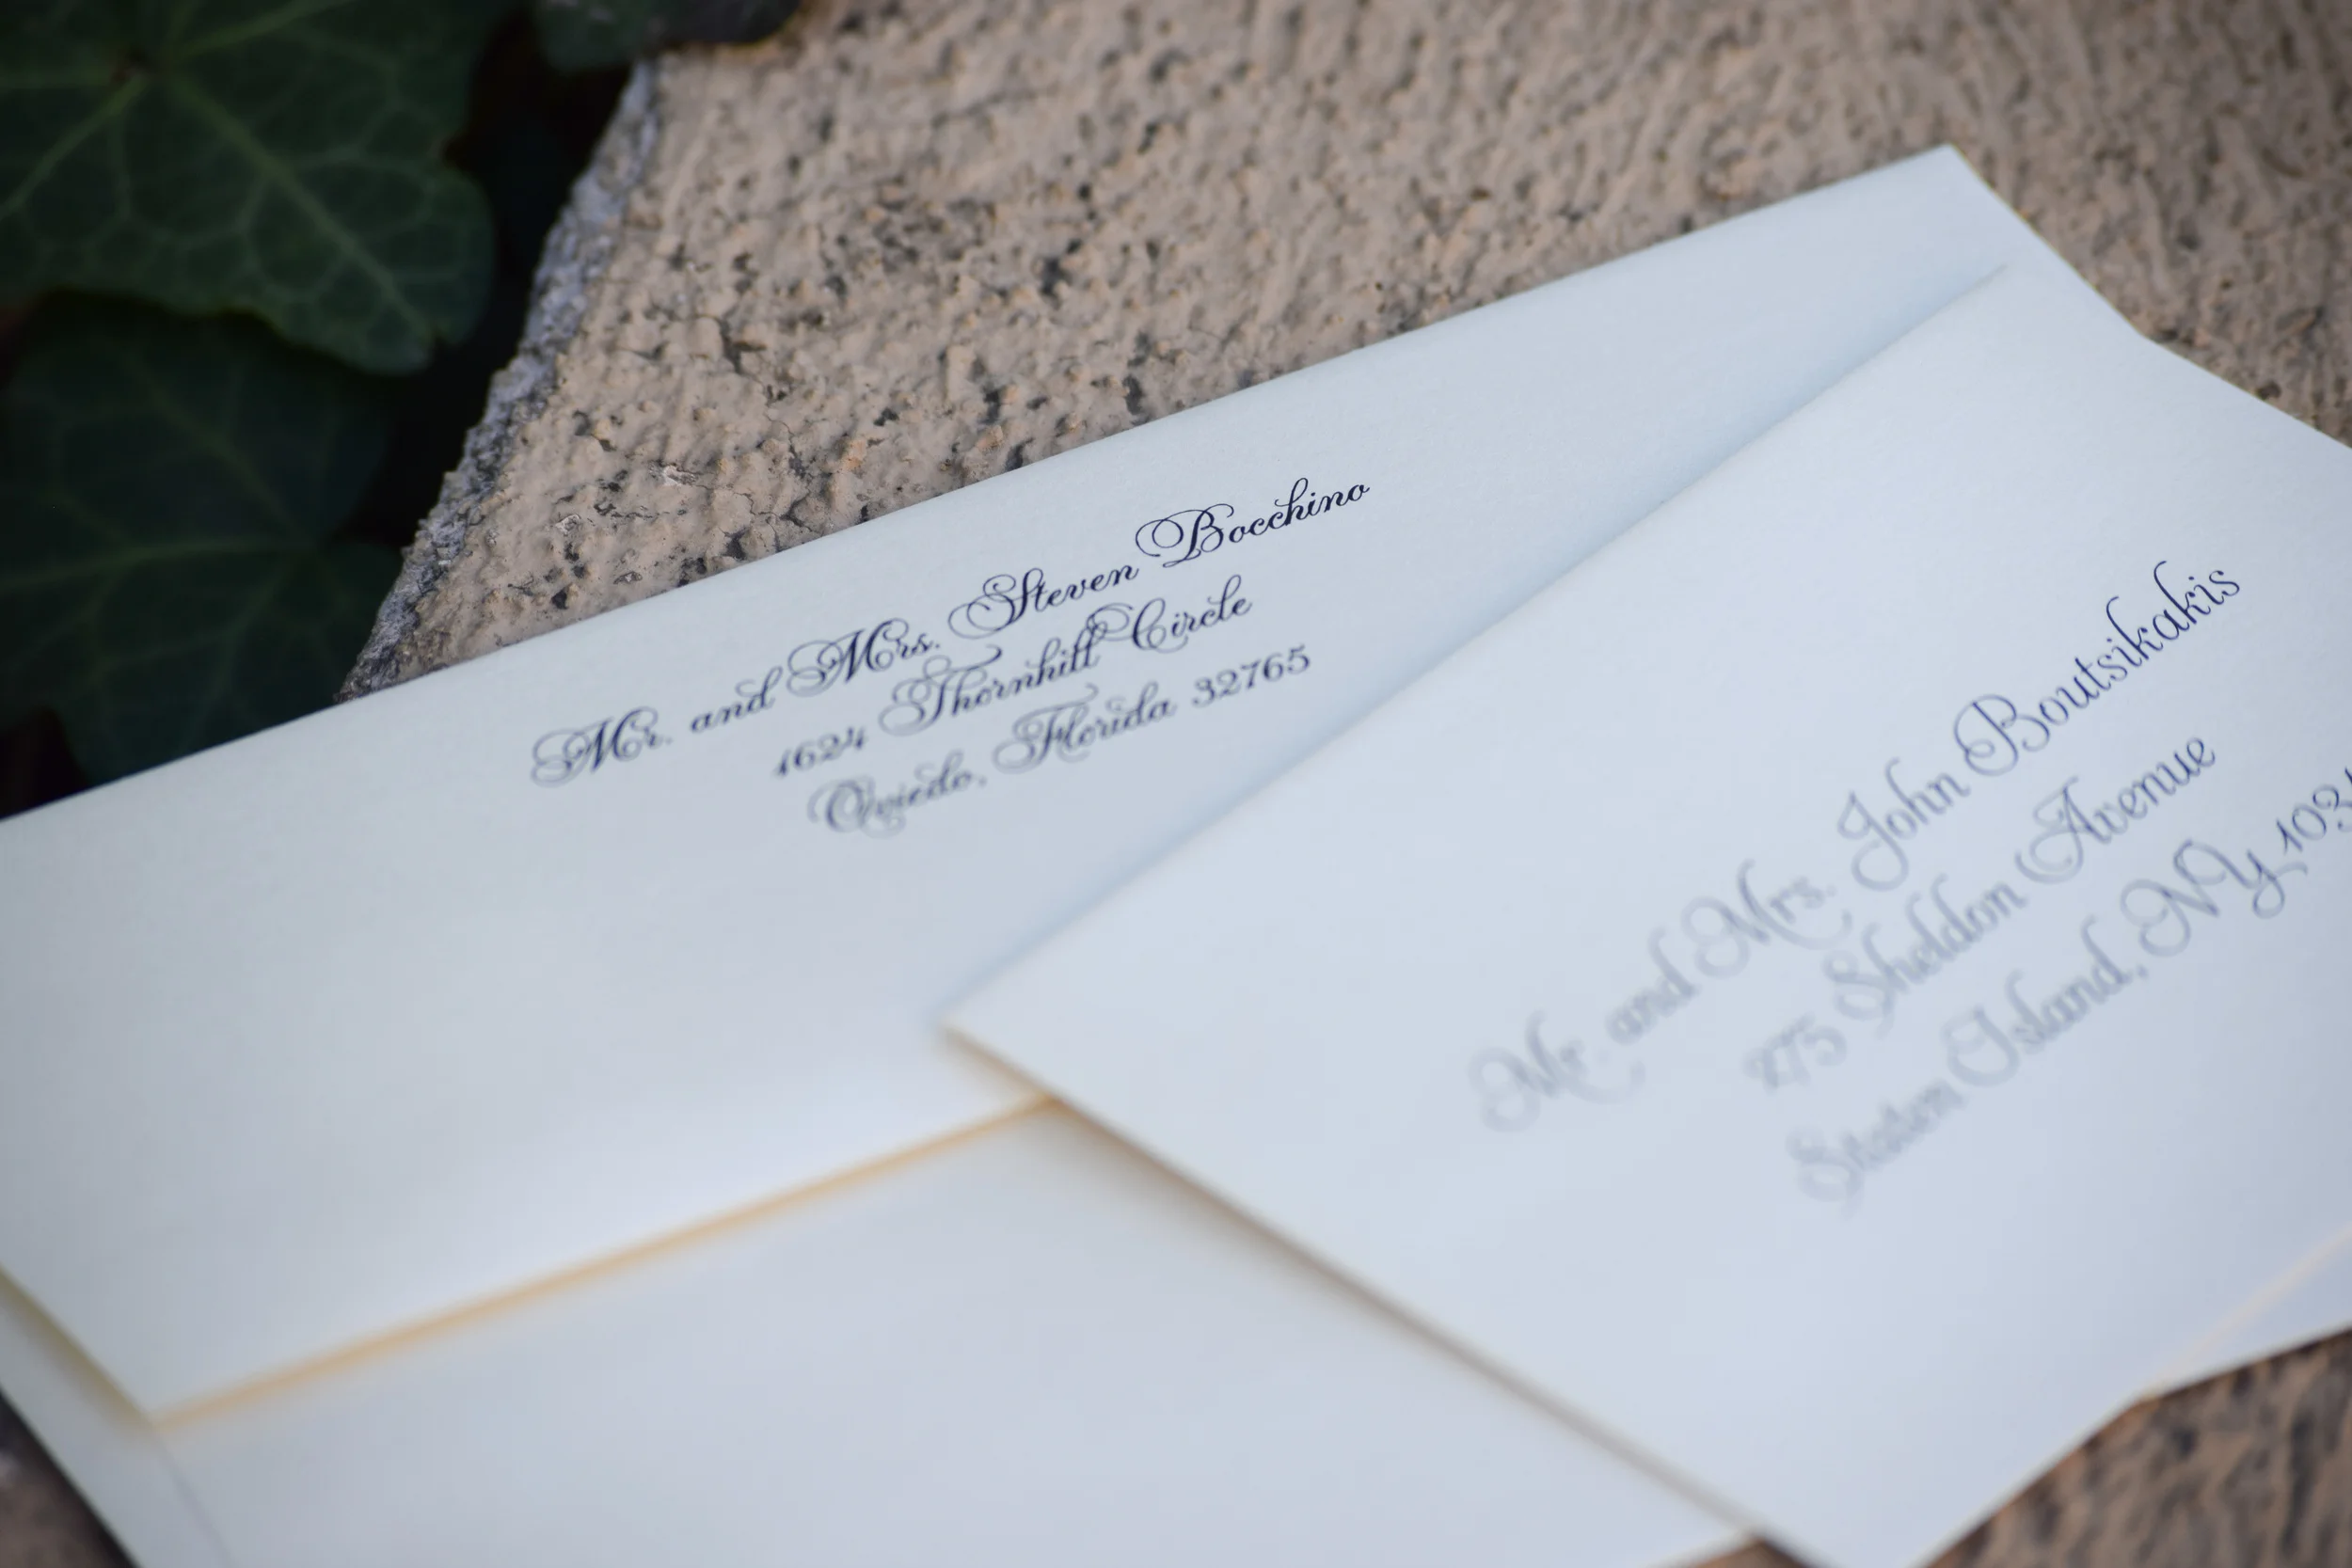 Mr. and Mrs. Steven Bocchino
1624 Thornhill Circle
Oviedo, Florida 32765
Mr. and Mrs. John Boutsikakis
275 Sheldon Avenue
Staten Island, NY